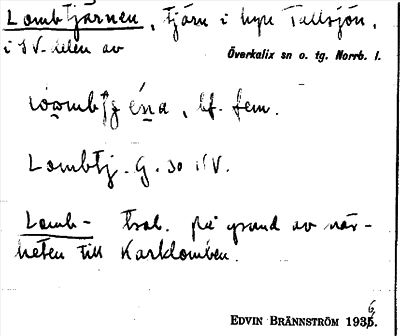 Lombtjärnen, tjärn i byn Tallsjön,
i SV-delen av
Överkalix sn o. tg. Norrb. l.
bf. fem.
Lombtj. G. 30 SV.
Lomb- trol. på grund av när-
heten till Karklomben.
EDVIN BRÄNNSTRÖM 1936.